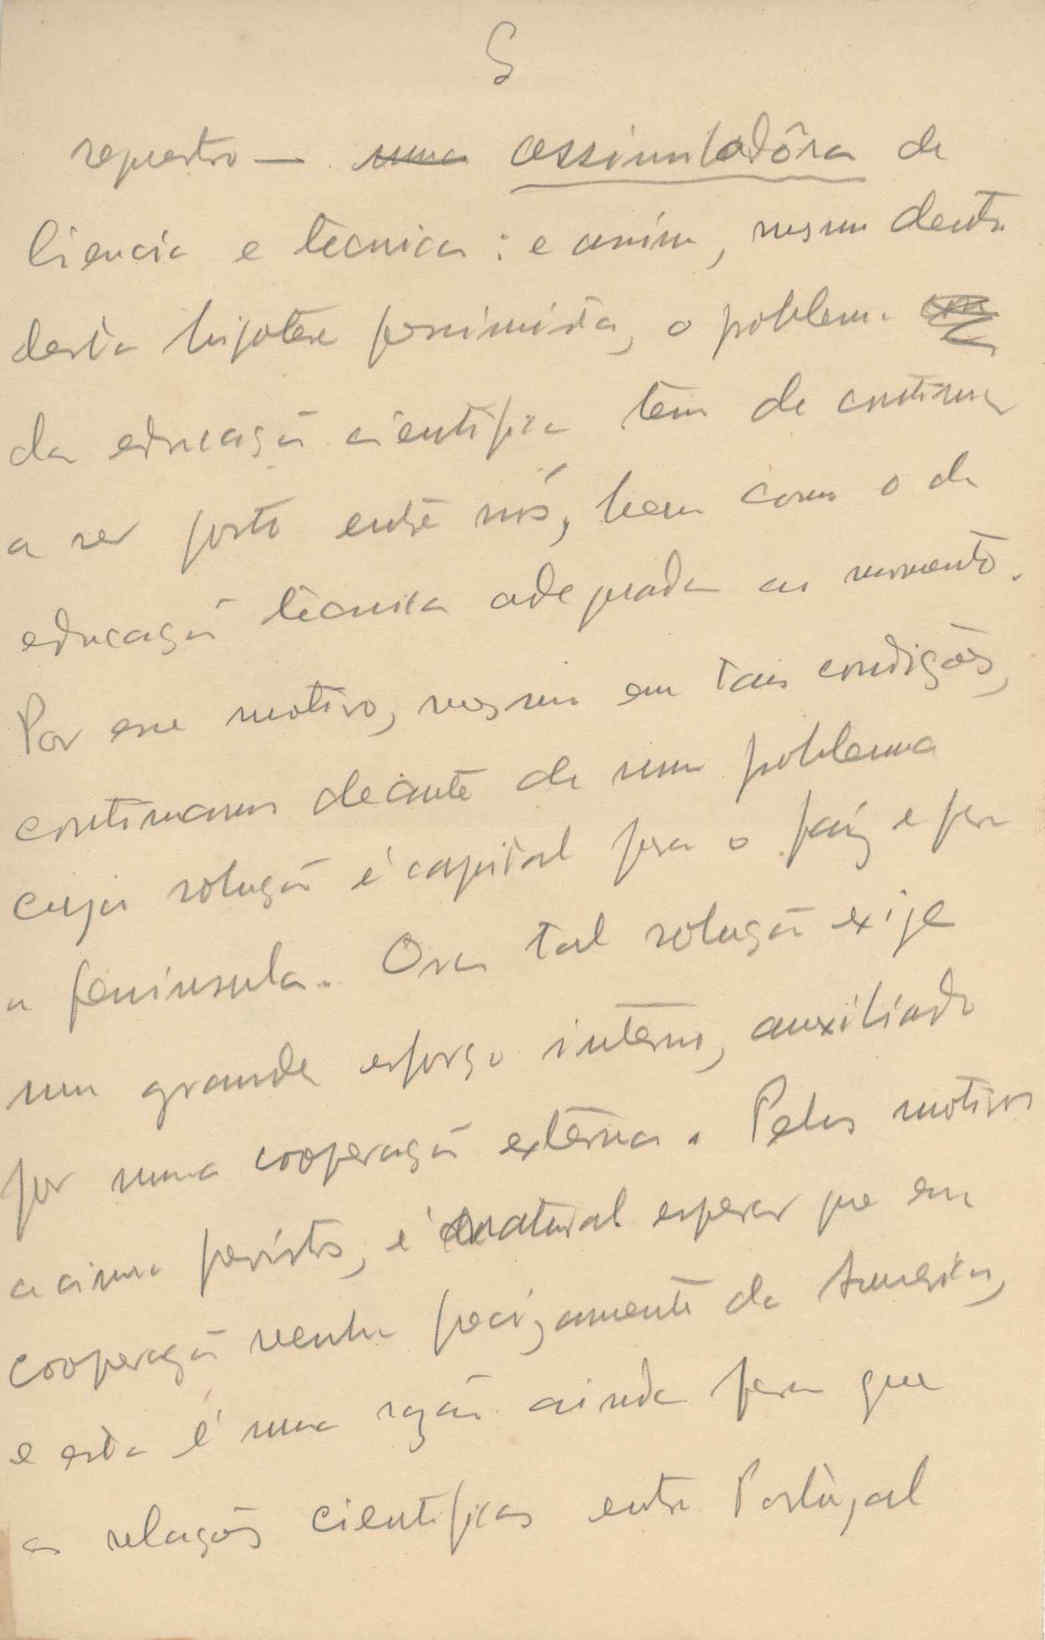 5
— uma assimiladôra de
Ciencia e técnica: e assim, mesmo dentro
desta hipotese pessimista, o problema
da educação cientifica tem de continuar
a ser posto entre nós, bem como o da
educação técnica adequada ao momento.
Por esse motivo, mesmo em tais condições,
continuamos deante de um problema
cuja solução é capital para o paiz e para
a peninsula. Ora tal solução exige
um grande esforço interno, auxiliado
por uma cooperação externa. Pelos motivos
acima previstos, é natural esperar que em
cooperação venha precizamente da America,
e esta é uma razão ainda para que
as relações cientificas entre Portugal